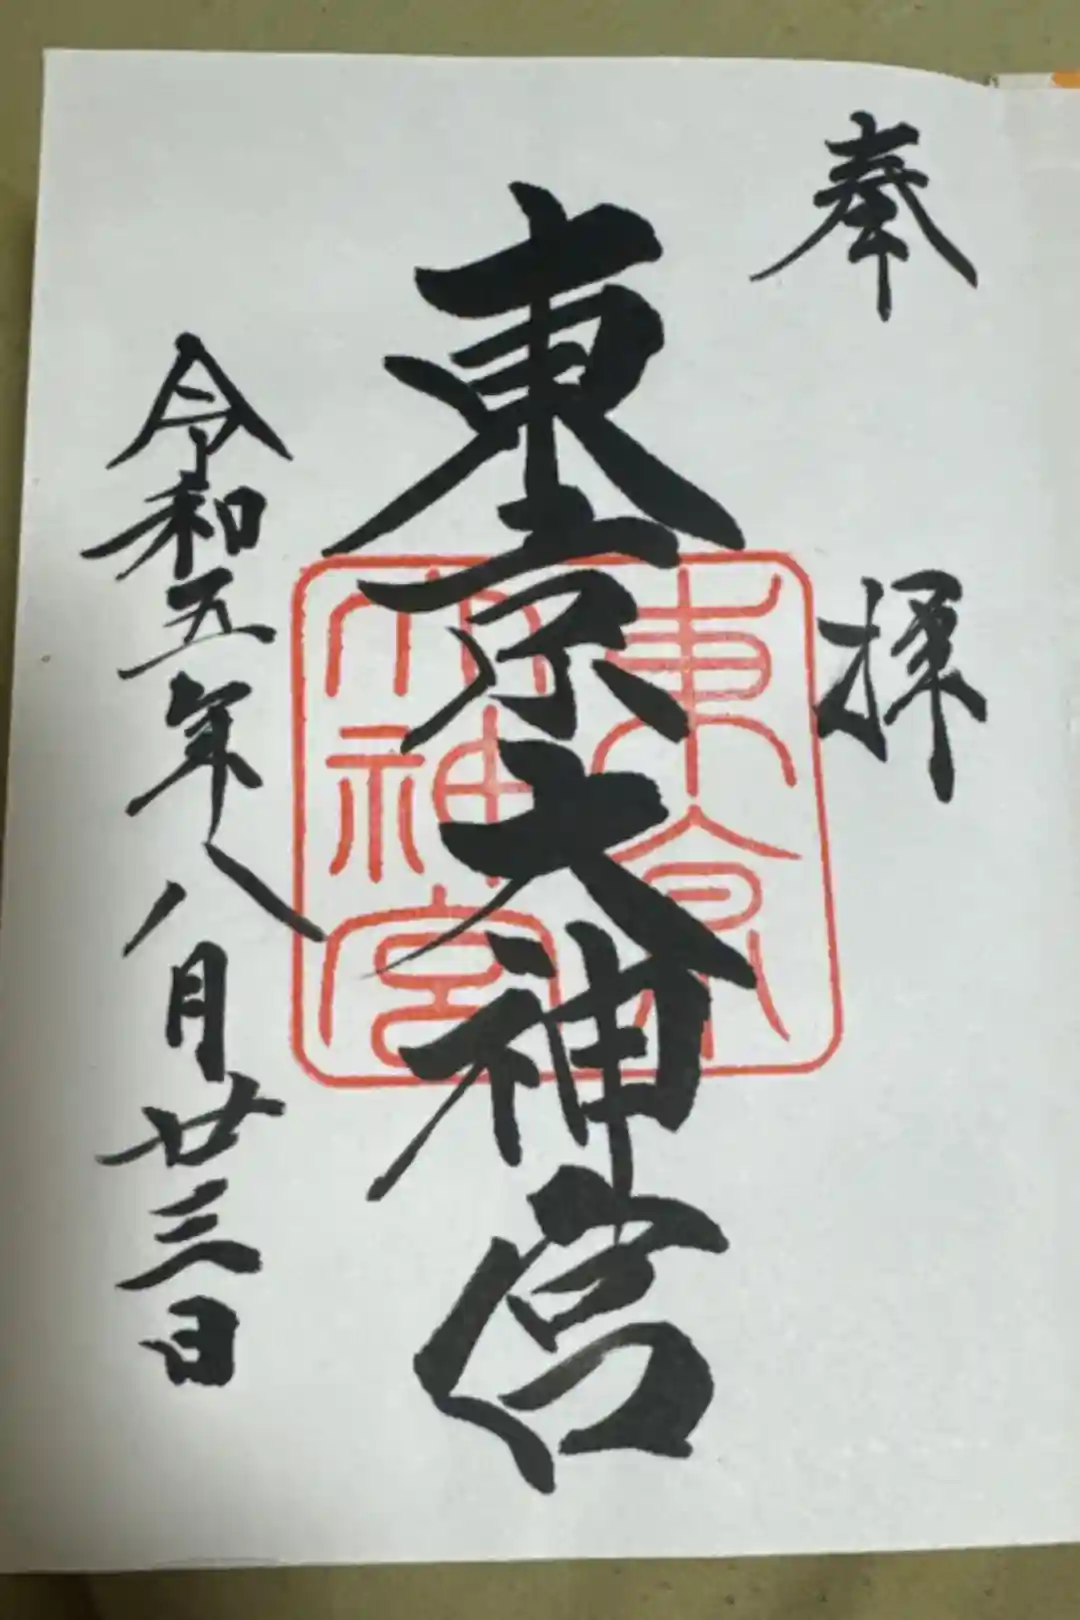 奉拝
東京大神宮
東京
大神宮
令和五年八月廿三日